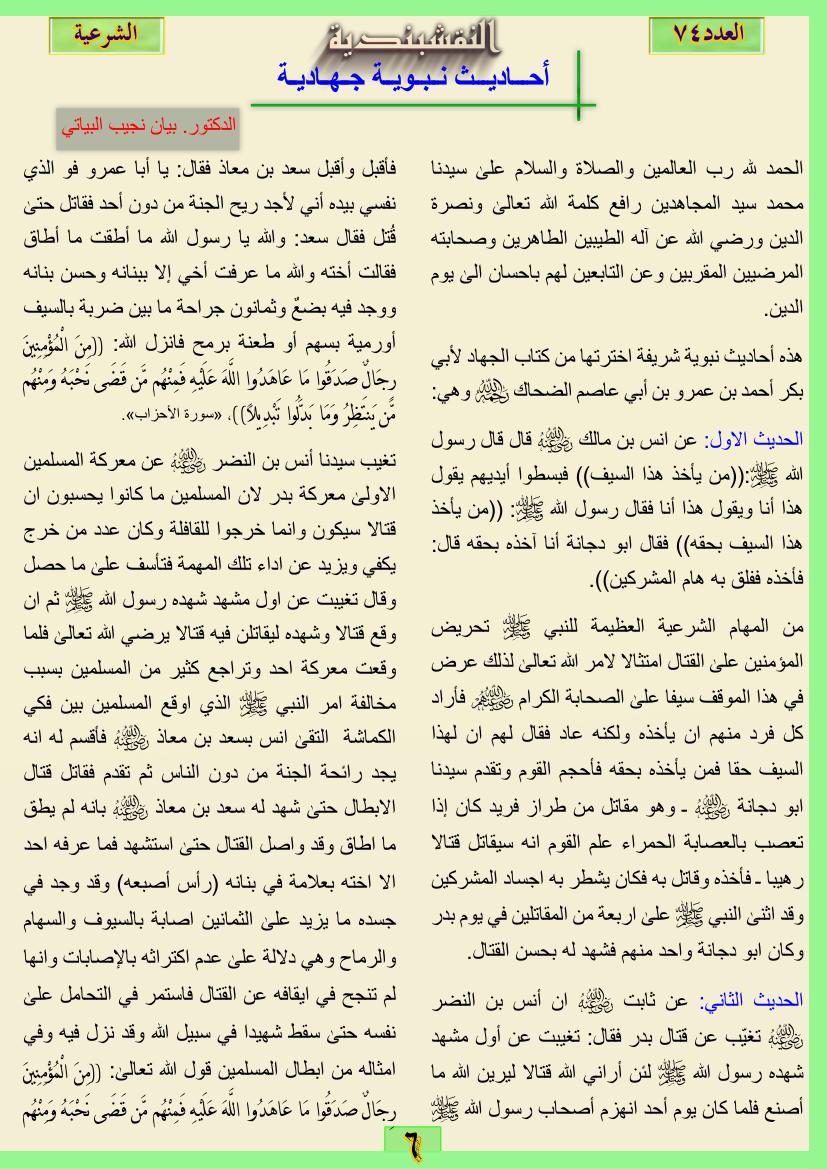 العدد ٧٤
النقشبندية
الشرعية
أحـــاديــث نـبـويـة جـهـاديـة
الدكتور. بيان نجيب البياتي
الحمد لله رب العالمين والصلاة والسلام علىٰ سيدنا
محمد سيد المجاهدين رافع كلمة الله تعالىٰ ونصرة
الدين ورضي الله عن آله الطيبين الطاهرين وصحابته
المرضيين المقربين وعن التابعين لهم باحسان الىٰ يوم
الدين.
هذه أحاديث نبوية شريفة اخترتها من كتاب الجهاد لأبي
بكر أحمد بن عمرو بن أبي عاصم الضحاك رحمه الله وهي:
الحديث الاول: عن انس بن مالك رضي الله عنه قال قال رسول
الله ﷺ:((من يأخذ هذا السيف)) فبسطوا أيديهم يقول
هذا أنا ويقول هذا أنا فقال رسول الله ﷺ: ((من يأخذ
هذا السيف بحقه)) فقال ابو دجانة أنا آخذه بحقه قال:
فأخذه ففلق به هام المشركين)).
من المهام الشرعية العظيمة للنبي ﷺ تحريض
المؤمنين علىٰ القتال امتثالا لامر الله تعالىٰ لذلك عرض
في هذا الموقف سيفا علىٰ الصحابة الكرام رضي الله عنهم فأراد
كل فرد منهم ان يأخذه ولكنه عاد فقال لهم ان لهذا
السيف حقا فمن يأخذه بحقه فأحجم القوم وتقدم سيدنا
ابو دجانة رضي الله عنه ـ وهو مقاتل من طراز فريد كان إذا
تعصب بالعصابة الحمراء علم القوم انه سيقاتل قتالا
رهيبا ـ فأخذه وقاتل به فكان يشطر به اجساد المشركين
وقد اثنىٰ النبي ﷺ علىٰ اربعة من المقاتلين في يوم بدر
وكان ابو دجانة واحد منهم فشهد له بحسن القتال.
الحديث الثاني: عن ثابت رضي الله عنه ان أنس بن النضر
رضي الله عنه تغيّب عن قتال بدر فقال: تغيبت عن أول مشهد
شهده رسول الله ﷺ لئن أراني الله قتالا ليرين الله ما
أصنع فلما كان يوم أحد انهزم أصحاب رسول الله ﷺ
فأقبل وأقبل سعد بن معاذ فقال: يا أبا عمرو فو الذي
نفسي بيده أني لأجد ريح الجنة من دون أحد فقاتل حتىٰ
قُتل فقال سعد: والله يا رسول الله ما أطقت ما أطاق
فقالت أخته والله ما عرفت أخي إلا ببنانه وحسن بنانه
ووجد فيه بضعٌ وثمانون جراحة ما بين ضربة بالسيف
أورمية بسهم أو طعنة برمح فانزل الله: ((مِنَ الْمُؤْمِنِينَ
رِجَالٌ صَدَقُوا مَا عَاهَدُوا اللَّهَ عَلَيْهِ فَمِنْهُم مَّن قَضَى نَحْبَهُ وَمِنْهُم
مَّن يَنتَظِرُ وَمَا بَدَّلُوا تَبْدِيلًا)). «سورة الأحزاب».
تغيب سيدنا أنس بن النضر رضي الله عنه عن معركة المسلمين
الاولىٰ معركة بدر لان المسلمين ما كانوا يحسبون ان
قتالا سيكون وانما خرجوا للقافلة وكان عدد من خرج
يكفي ويزيد عن اداء تلك المهمة فتأسف علىٰ ما حصل
وقال تغيبت عن اول مشهد شهده رسول الله ﷺ ثم ان
وقع قتالا وشهده ليقاتلن فيه قتالا يرضي الله تعالىٰ فلما
وقعت معركة احد وتراجع كثير من المسلمين بسبب
مخالفة امر النبي ﷺ الذي اوقع المسلمين بين فكي
الكماشة التقىٰ انس بسعد بن معاذ رضي الله عنه فأقسم له انه
يجد رائحة الجنة من دون الناس ثم تقدم فقاتل قتال
الابطال حتىٰ شهد له سعد بن معاذ رضي الله عنه بانه لم يطق
ما اطاق وقد واصل القتال حتىٰ استشهد فما عرفه احد
الا اخته بعلامة في بنانه (رأس أصبعه) وقد وجد في
جسده ما يزيد علىٰ الثمانين اصابة بالسيوف والسهام
والرماح وهي دلالة علىٰ عدم اكتراثه بالإصابات وانها
لم تنجح في ايقافه عن القتال فاستمر في التحامل علىٰ
نفسه حتىٰ سقط شهيدا في سبيل الله وقد نزل فيه وفي
امثاله من ابطال المسلمين قول الله تعالىٰ: ((مِنَ الْمُؤْمِنِينَ
رِجَالٌ صَدَقُوا مَا عَاهَدُوا اللَّهَ عَلَيْهِ فَمِنْهُم مَّن قَضَى نَحْبَهُ وَمِنْهُم
٦